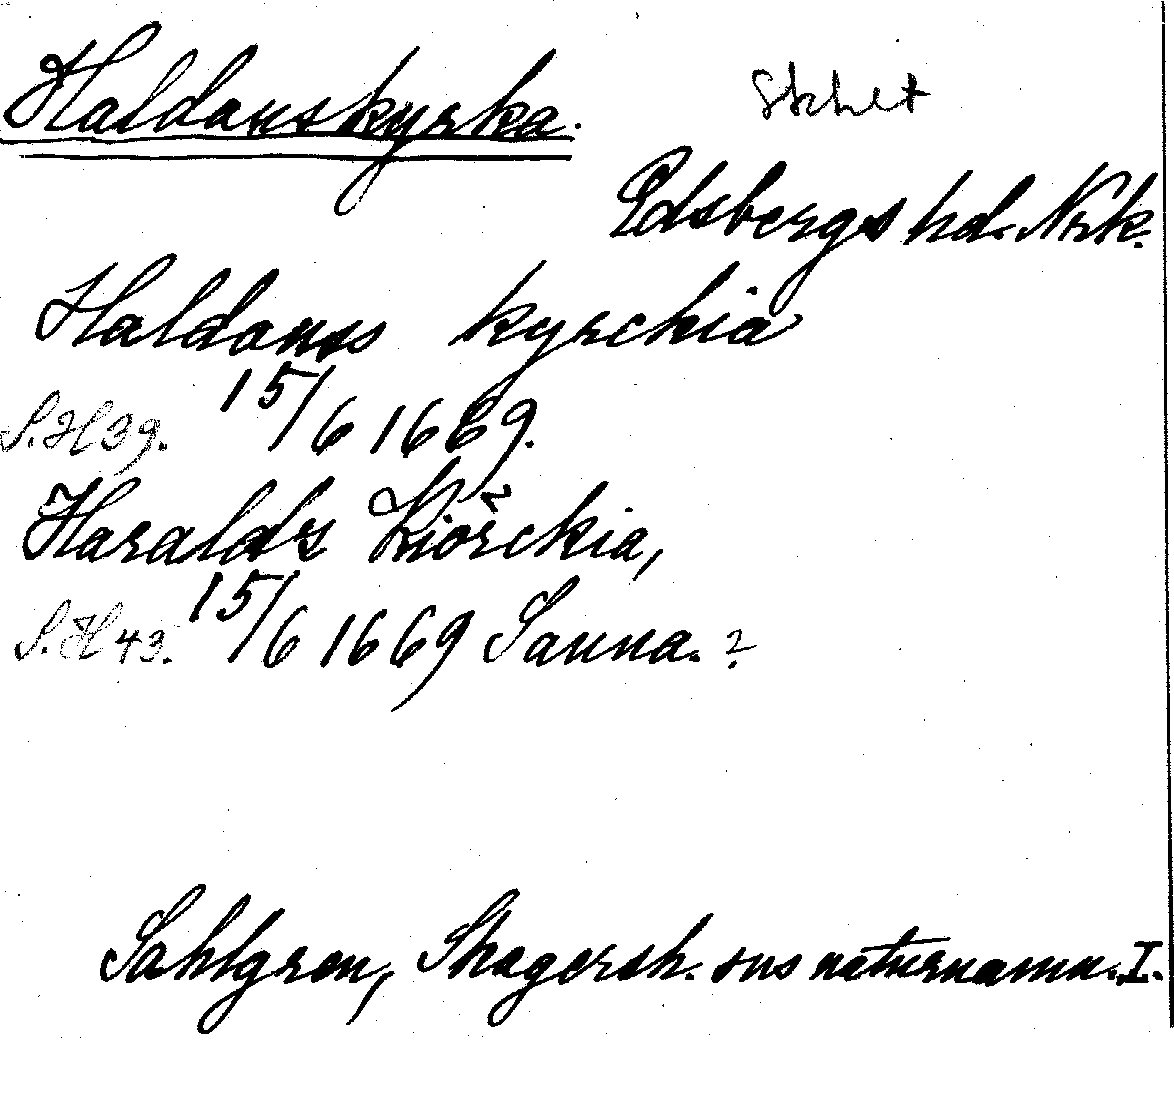 Haldanskyrka.
Edsbergs hd. Nrk.
Haldanss kyrckia
S.H 39. 15/6 1669.
Haralds Kiörckia,
S.H 43. 15/6 1669 Sanna. ?
Sahlgren, Skagersh. sns naturnamn. I.